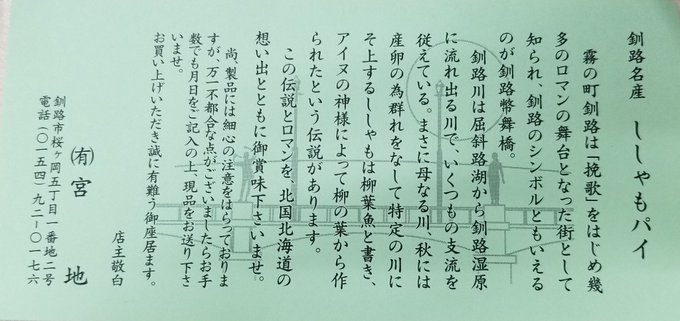 釧路名産　ししゃもパイ
霧の町釧路は「挽歌」をはじめ幾
多のロマンの舞台となった街として
知られ、釧路のシンボルともいえる
のが釧路幣舞橋。
釧路川は屈斜路湖から釧路湿原
に流れ出る川で、いくつもの支流を
従えている。まさに母なる川、秋には
産卵の為群れをなして特定の川に
そ上するししゃもは柳葉魚と書き、
アイヌの神様によって柳の葉から作
られたという伝説があります。
この伝説とロマンを、北国北海道の
想い出とともに御賞味下さいませ。
尚、製品には細心の注意をはらっておりま
すが、万一不都合な点がございましたらお手
数でも月日をご記入の上、現品をお送り下さ
いませ。
お買い上げいただき誠に有難う御座居ます。
店主敬白
㈲宮地
釧路市桜ヶ岡五丁目一番地二号
電話(〇一五四)九二-〇一七六